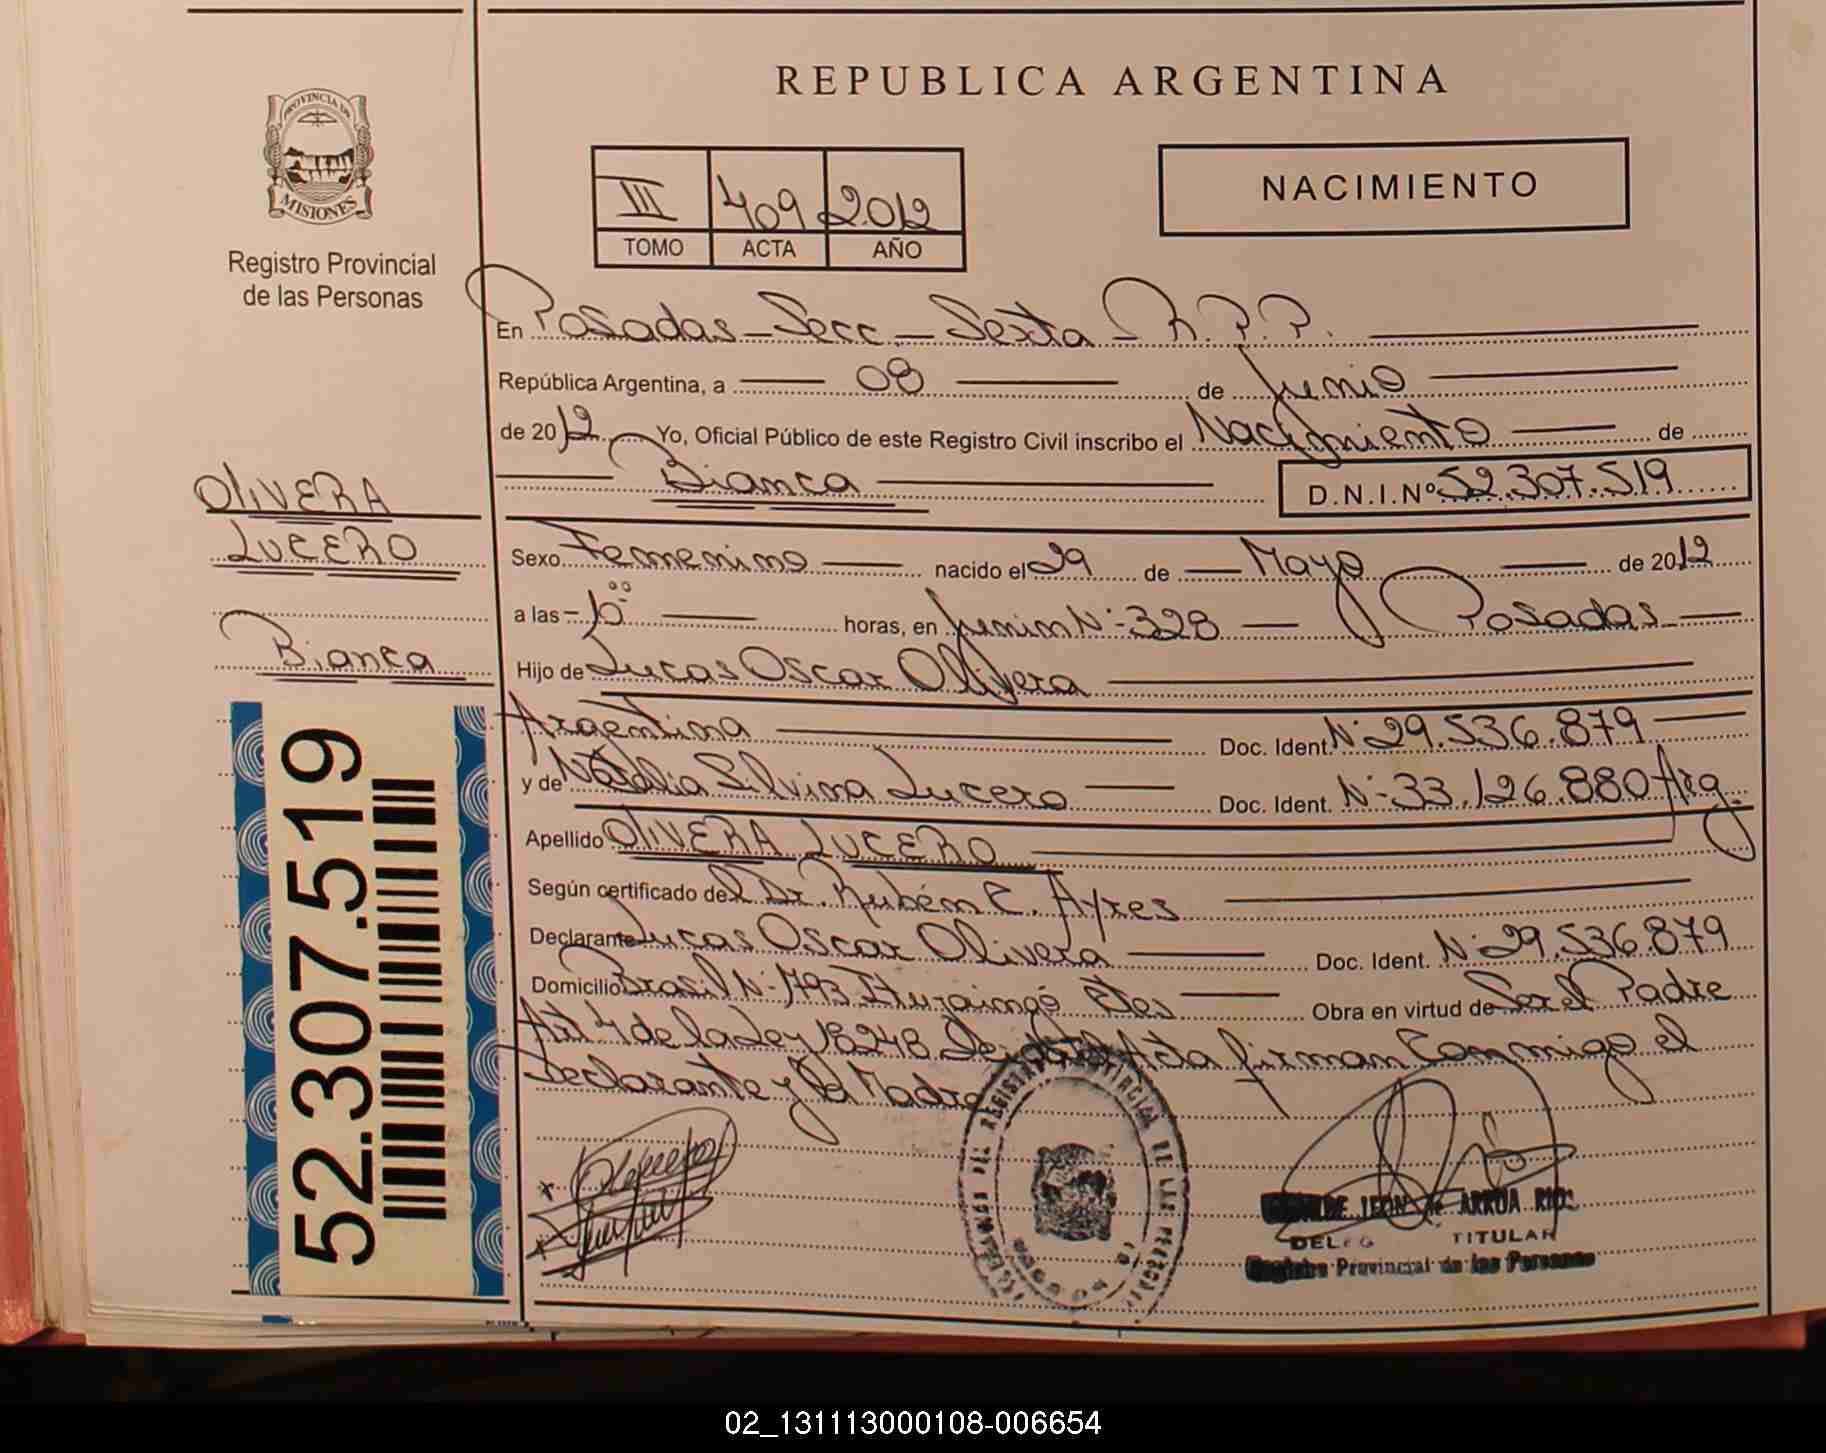 REPUBLICA ARGENTINA
PROVINCIA DE
MISIONES
Registro Provincial
de las Personas
III 409 2012
TOMO ACTA AÑO
NACIMIENTO
En Posadas - Secc. - Sexta - R.P.P.
República Argentina, a 08 de Junio
de 2012 Yo, Oficial Público de este Registro Civil inscribo el Nacimiento de
Bianca D.N.I.Nº 52.307.519
OLIVERA
LUCERO
Bianca
Sexo Femenino nacido el 29 de Mayo de 2012
a las - 10 00 horas, en Junin Nº 328 Posadas
Hijo de Lucas Oscar Olivera
Argentina Doc. Ident. Nº 29.536.879
y de Natalia Silvina Lucero Doc. Ident. Nº 33.126.880 Arg.
Apellido OLIVERA LUCERO
Según certificado del Dr. Rubén E. Ayres
Declarante Lucas Oscar Olivera Doc. Ident. Nº 29.536.879
Domicilio Brasil Nº 1793 Ituzaingó Ctes Obra en virtud de Ser el Padre
Art 4 de la Ley 18248 Acta firman Conmigo el
Declarante y la Madre
52.307.519
DEL REGISTRO PROVINCIAL DE LAS PERSONAS
LEON de ARRUA RIOS
TITULAR
Registro Provincial de las Personas
02_131113000108-006654